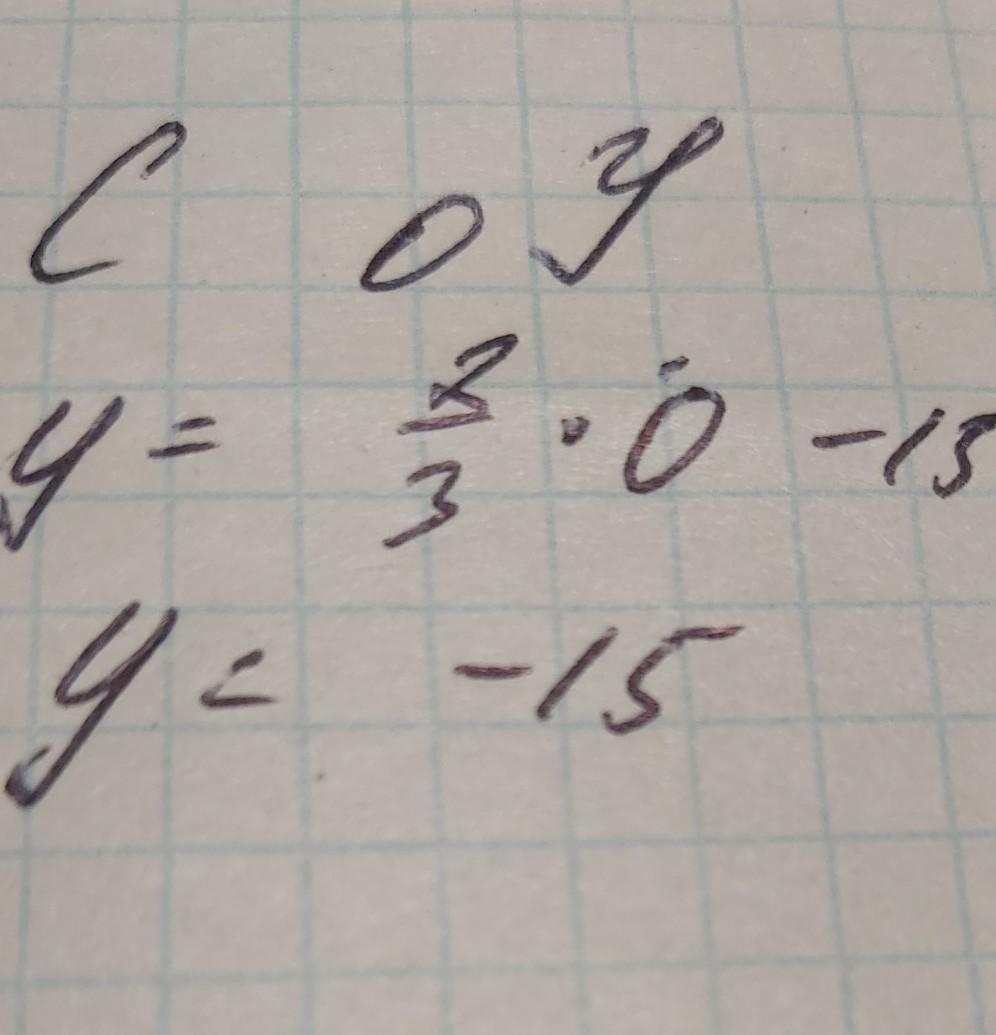 С ОУ
y = 2/3 · 0 - 15
y = -15